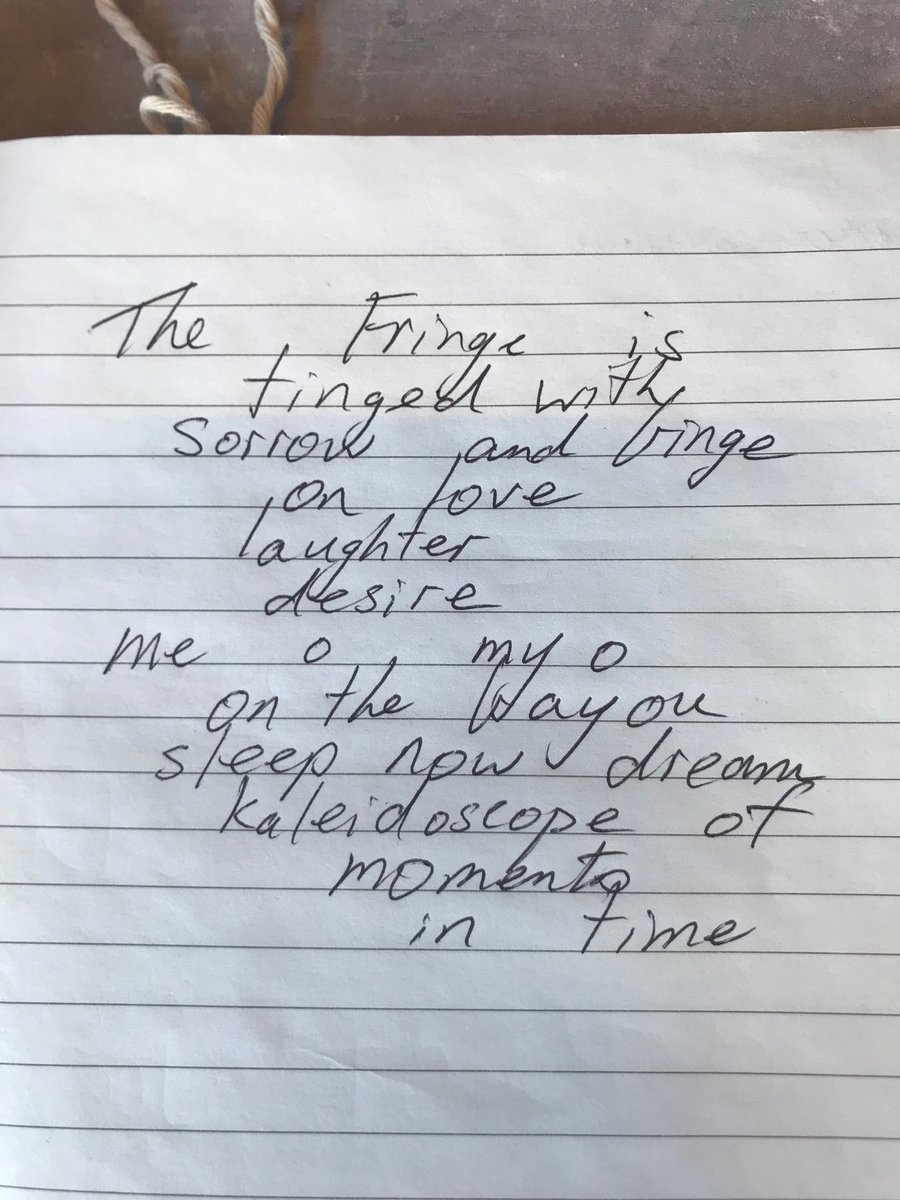 The Fringe is
tinged with
sorrow and binge
on love
laughter
desire
me o my o
on the bayou
sleep now dream
kaleidoscope of
momento
in time